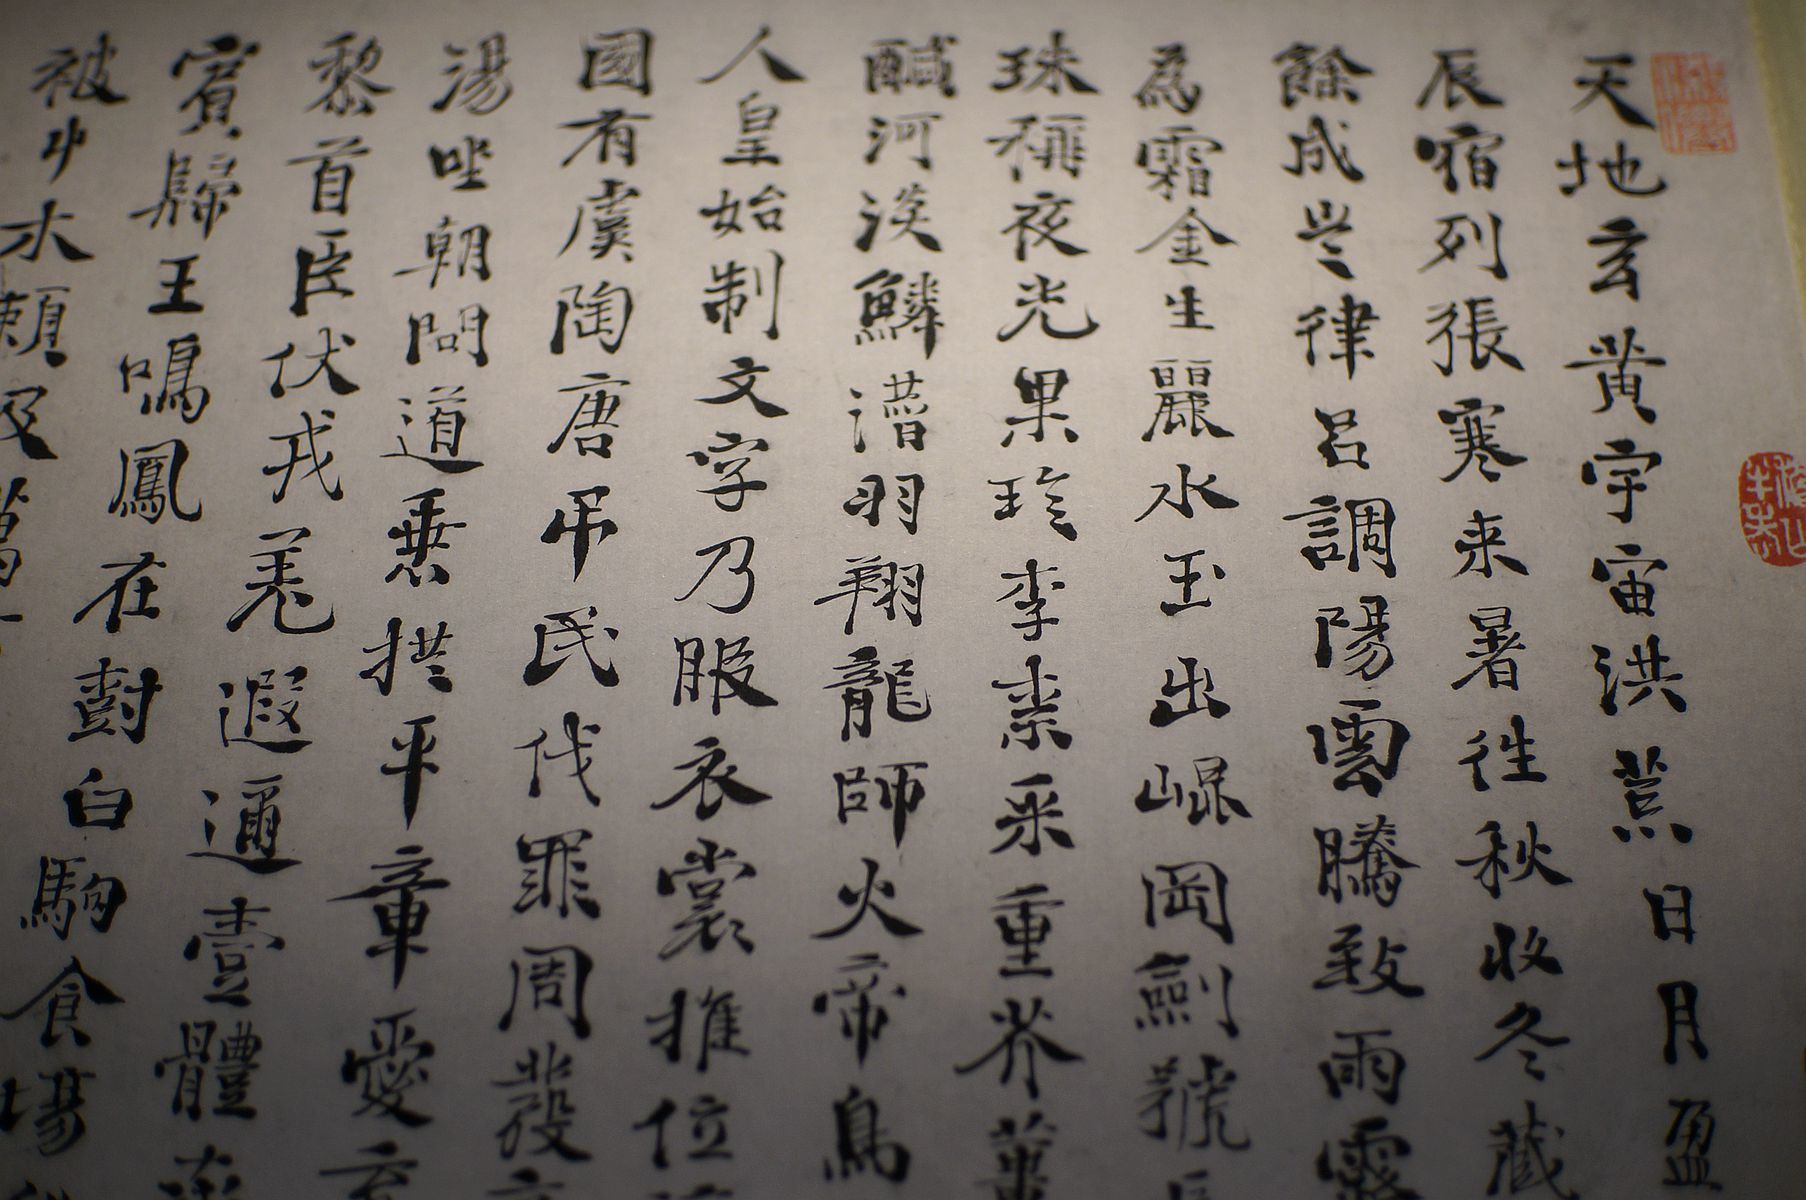 天地玄黄宇宙洪荒日月盈
辰宿列張寒来暑往秋收冬藏
餘成歲律吕調陽雲騰致雨露
為霜金生麗水玉出崐岡劍號巨
珠稱夜光果珍李柰采重芥薑
鹹河淡鱗潛羽翔龍師火帝鳥
人皇始制文字乃服衣裳推位
國有虞陶唐吊民伐罪周發
湯坐朝問道垂拱平章愛育
黎首臣伏戎羌遐邇壹體率
賓歸王鳴鳳在樹白駒食場
被艸木賴及萬